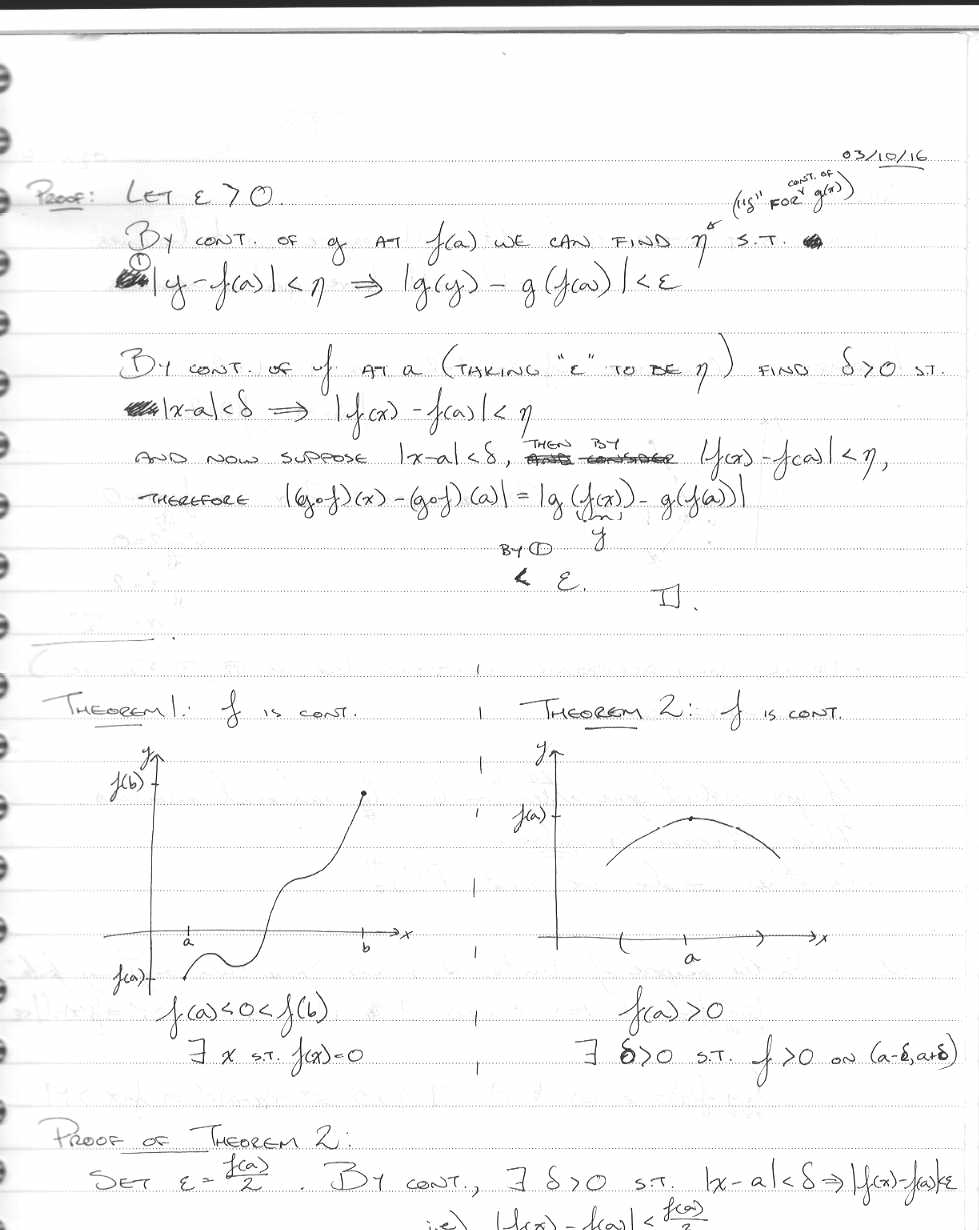 03/10/16
PROOF: LET ε > 0.
("δ" FOR CONT. OF g(x))
BY CONT. OF g AT f(a) WE CAN FIND η S.T.
① |y - f(a)| < η ⇒ |g(y) - g(f(a))| < ε
BY CONT. OF f AT a (TAKING "ε" TO BE η) FIND δ > 0 ST.
|x-a| < δ ⇒ |f(x) - f(a)| < η
AND NOW SUPPOSE |x-a| < δ, THEN BY |f(x) - f(a)| < η,
THEREFORE |(g∘f)(x) - (g∘f)(a)| = |g(f(x)) - g(f(a))|
y
BY ①
< ε. □.
THEOREM 1: f IS CONT.
y
f(b)
a
b
x
f(a)
f(a) < 0 < f(b)
∃ x S.T. f(x) = 0
THEOREM 2: f IS CONT.
y
f(a)
( )
x
a
f(a) > 0
∃ δ > 0 S.T. f > 0 ON (a-δ, a+δ)
PROOF OF THEOREM 2:
SET ε = f(a)/2. BY CONT., ∃ δ > 0 S.T. |x-a| < δ ⇒ |f(x)-f(a)| < ε
i.e) |f(x) - f(a)| < f(a)/2